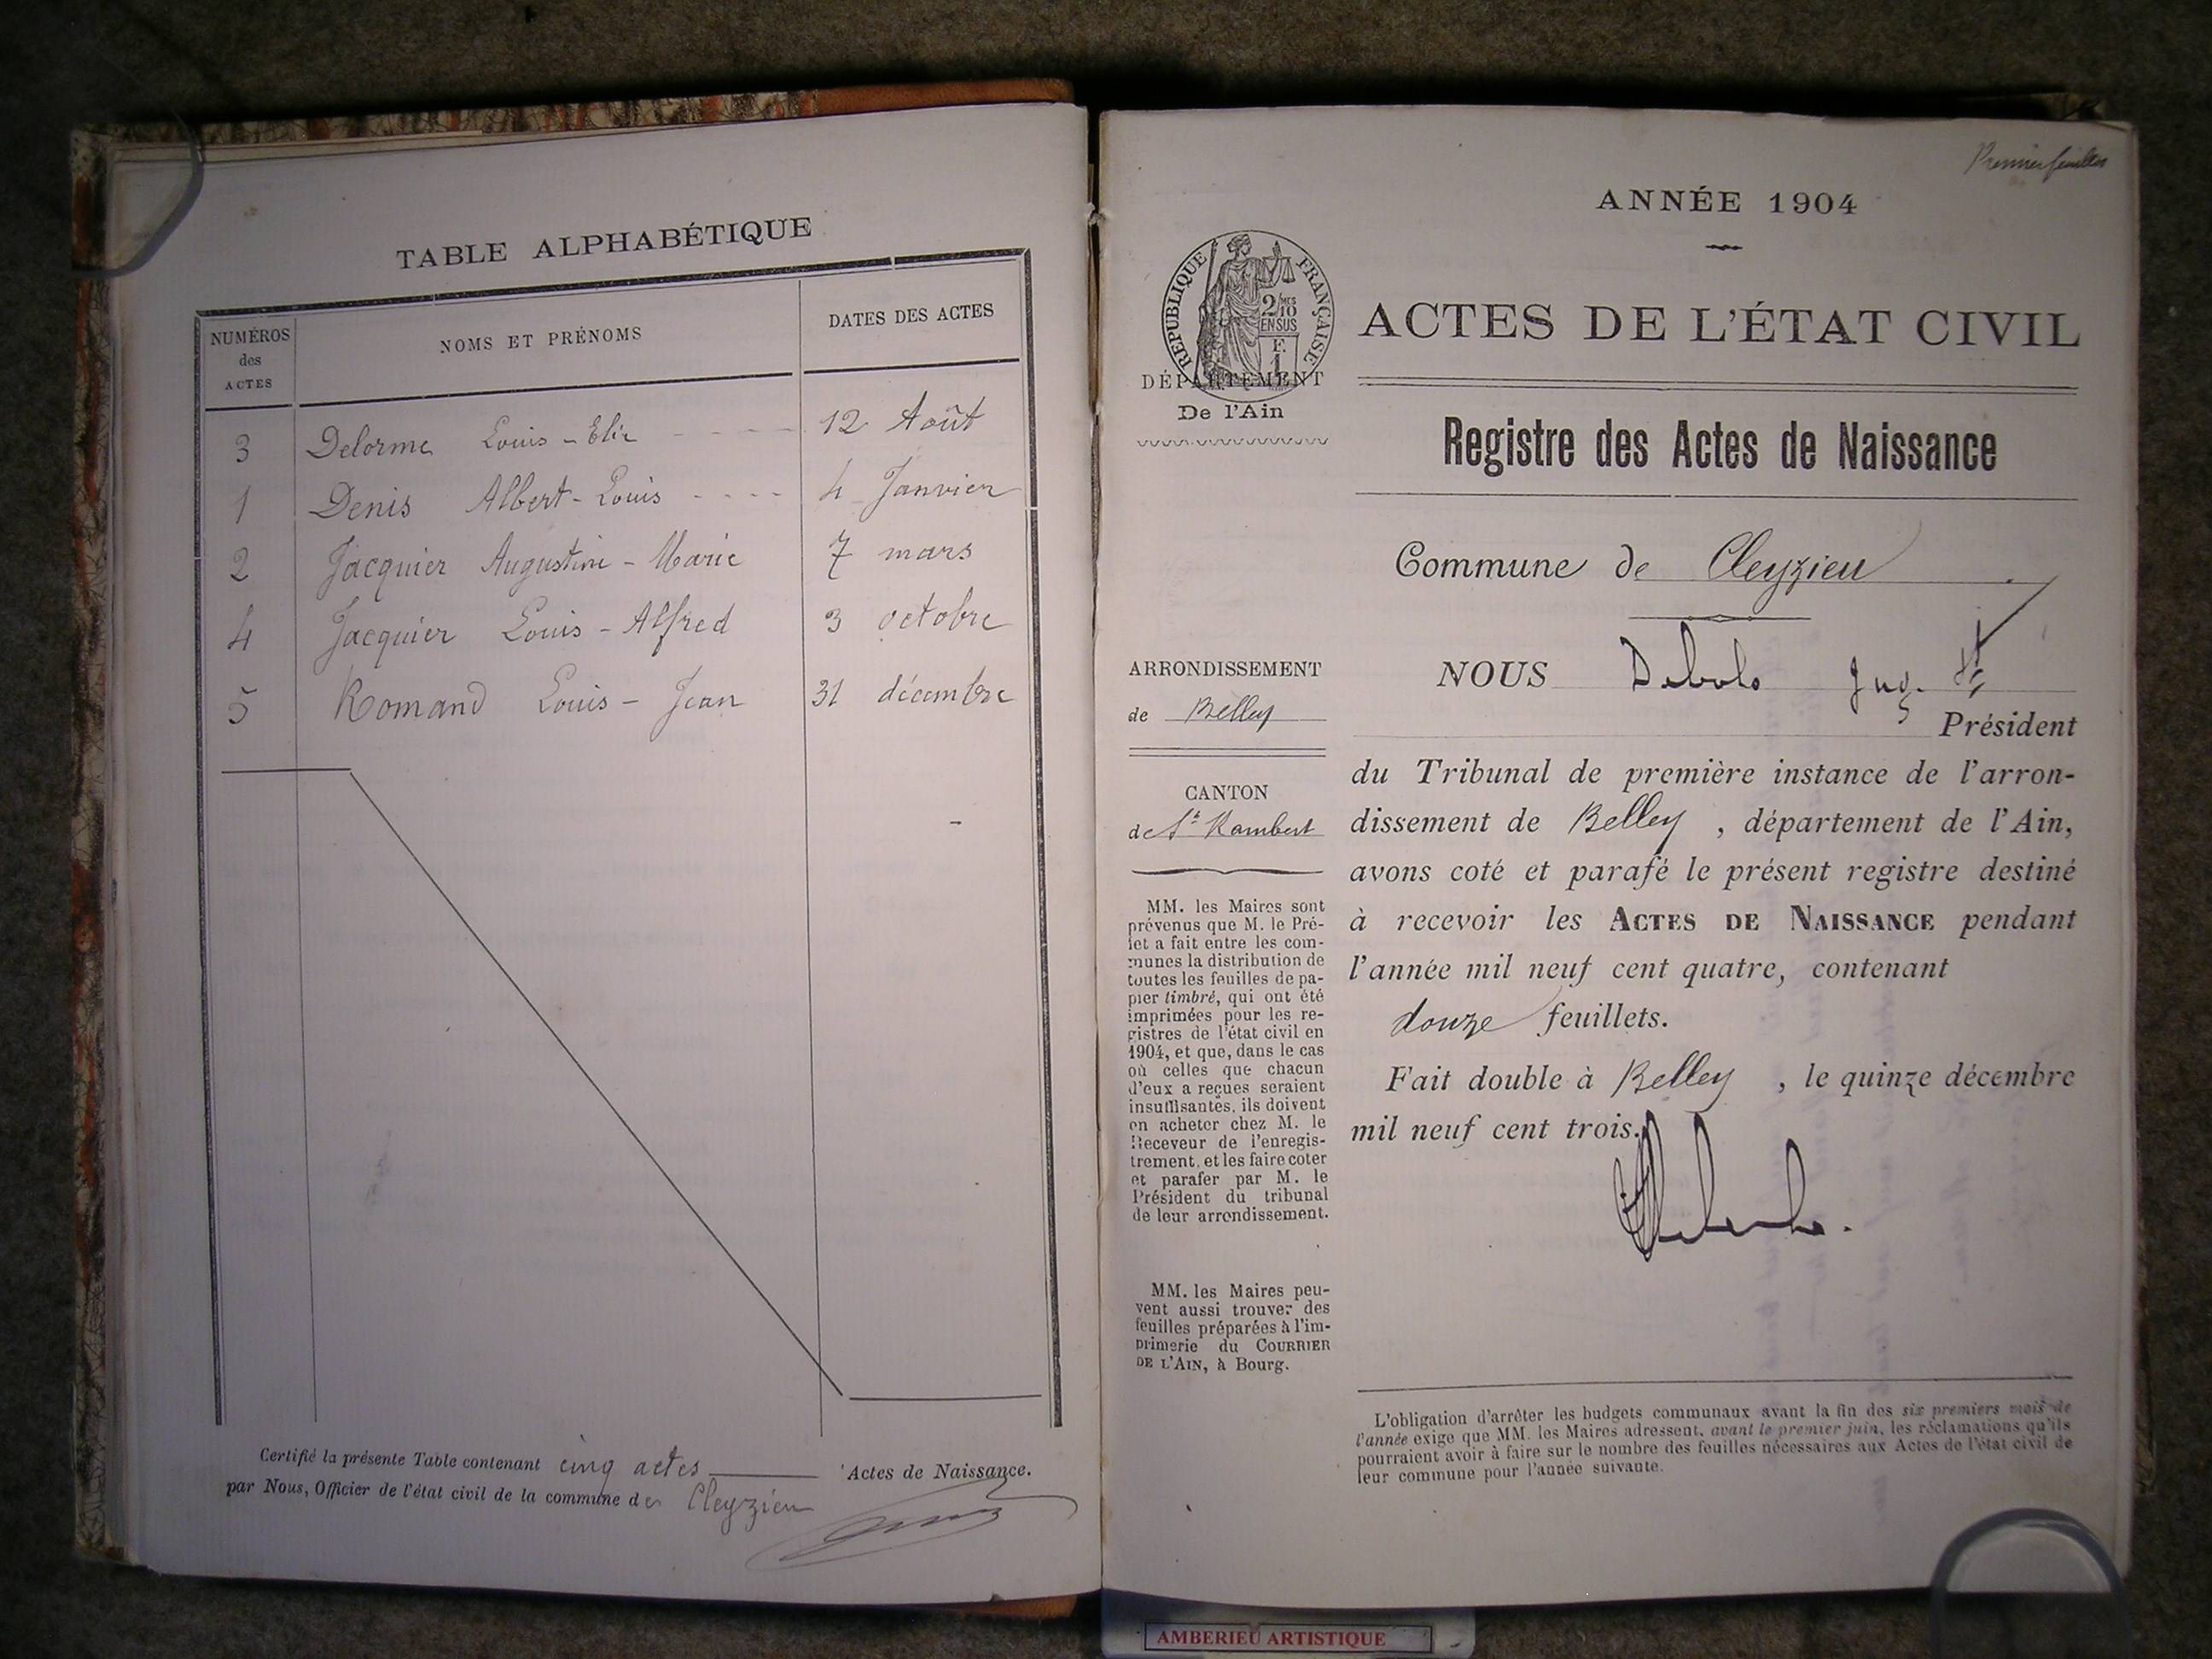 TABLE ALPHABÉTIQUE
NUMÉROS
des
ACTES
NOMS ET PRÉNOMS
DATES DES ACTES
3 Delorme Louis - Elie - - - - 12 Août
1 Denis Albert - Louis - - - - 4 Janvier
2 Jacquier Augustine - Marie 7 mars
4 Jacquier Louis - Alfred 3 octobre
5 Romand Louis - Jean 31 décembre
Certifié la présente Table contenant cinq actes Actes de Naissance.
par Nous, Officier de l'état civil de la commune de Cleyzieu
Premier feuillet
ANNÉE 1904
RÉPUBLIQUE FRANÇAISE
2/10 MES
EN SUS
F.
1
DÉPARTEMENT
De l'Ain
ACTES DE L'ÉTAT CIVIL
Registre des Actes de Naissance
Commune de Cleyzieu
ARRONDISSEMENT
de Belley
CANTON
de St Rambert
MM. les Maires sont
prévenus que M. le Pré-
fet a fait entre les com-
munes la distribution de
toutes les feuilles de pa-
pier timbré, qui ont été
imprimées pour les re-
gistres de l'état civil en
1904, et que, dans le cas
où celles que chacun
d'eux a reçues seraient
insuffisantes, ils doivent
en acheter chez M. le
Receveur de l'enregis-
trement, et les faire coter
et parafer par M. le
Président du tribunal
de leur arrondissement.
MM. les Maires peu-
vent aussi trouver des
feuilles préparées à l'im-
primerie du COURRIER
DE L'AIN, à Bourg.
NOUS
Président
du Tribunal de première instance de l'arron-
dissement de Belley, département de l'Ain,
avons coté et parafé le présent registre destiné
à recevoir les ACTES DE NAISSANCE pendant
l'année mil neuf cent quatre, contenant
douze feuillets.
Fait double à Belley, le quinze décembre
mil neuf cent trois.
L'obligation d'arrêter les budgets communaux avant la fin des six premiers mois de
l'année exige que MM. les Maires adressent, avant le premier juin, les réclamations qu'ils
pourraient avoir à faire sur le nombre des feuilles nécessaires aux Actes de l'état civil de
leur commune pour l'année suivante.
AMBERIEU ARTISTIQUE